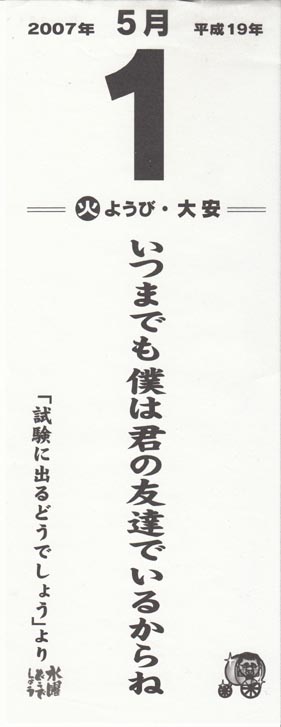 2007年 5月 平成19年
1
火ようび・大安
いつまでも僕は君の友達でいるからね
「試験に出るどうでしょう」より
水曜どうでしょう